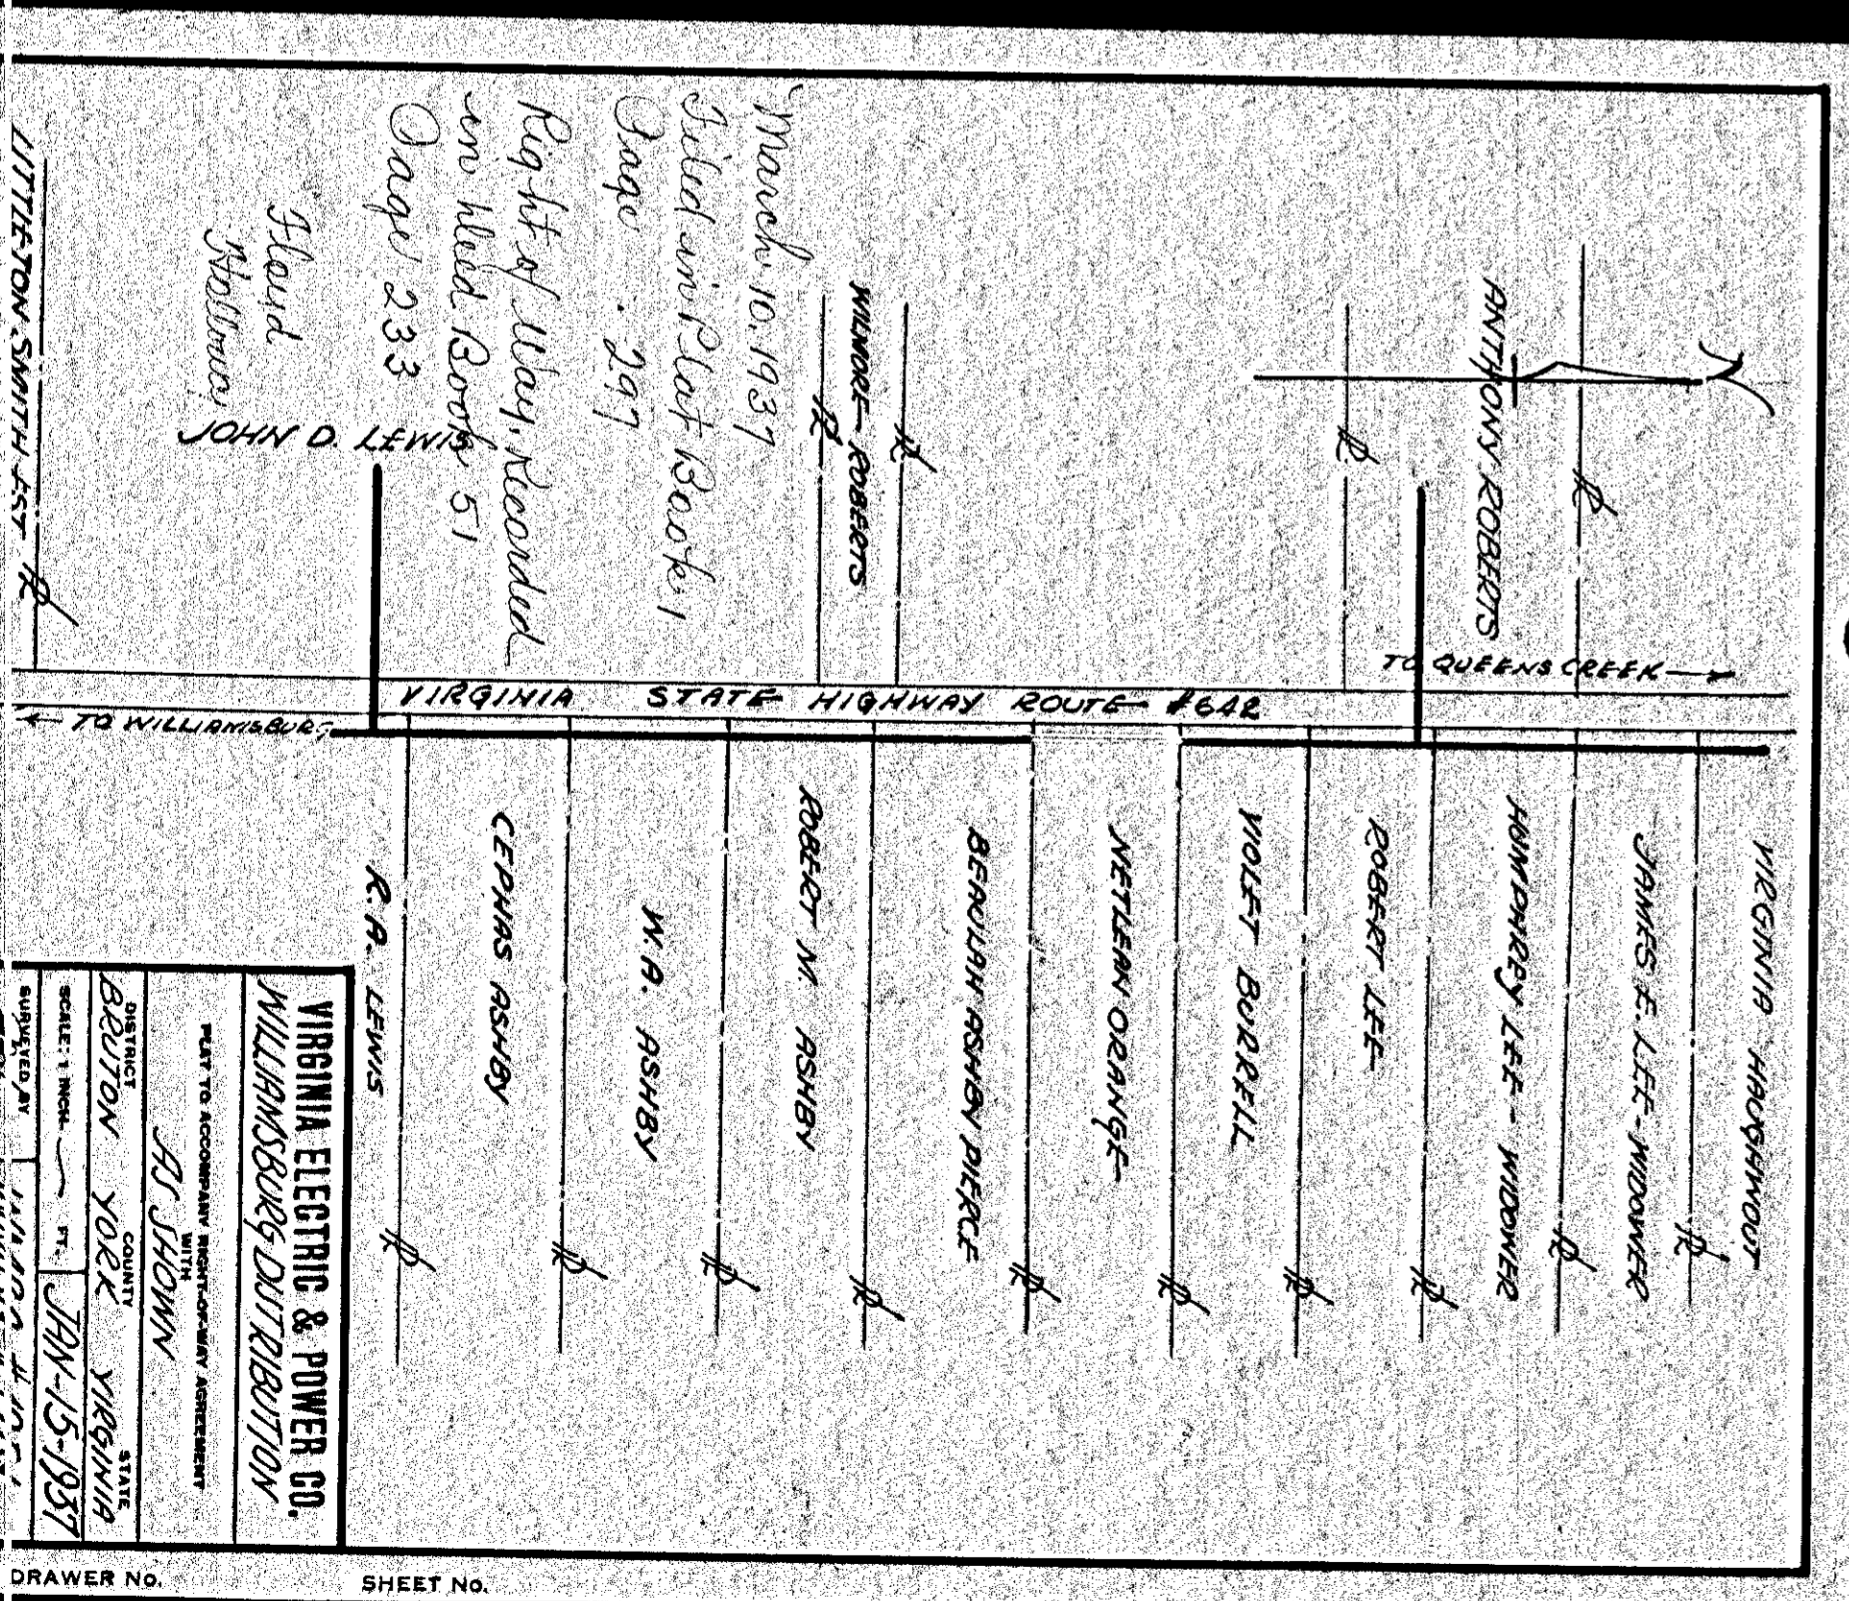 ANTHONY ROBERTS
WILMORE ROBERTS
March 10, 1937
Filed in Plat Book 1
Page . 297
Right of Way, Recorded
in Deed Book 51
Page 233
Floyd
Holloway
JOHN D. LEWIS
LITTLETON SMITH EST
TO QUEENS CREEK →
VIRGINIA STATE HIGHWAY ROUTE #642
← TO WILLIAMSBURG
VIRGINIA HAUGHWOUT
JAMES E. LEE - WIDOWER
HUMPHREY LEE - WIDOWER
ROBERT LEE
VIOLET BURRELL
NETLEAN ORANGE
BEAULAH ASHBY PIERCE
ROBERT M. ASHBY
W.A. ASHBY
CEPHAS ASHBY
R.A. LEWIS
VIRGINIA ELECTRIC & POWER CO.
WILLIAMSBURG DISTRIBUTION
PLAT TO ACCOMPANY RIGHT-OF-WAY AGREEMENT
WITH
AS SHOWN
DISTRICT COUNTY STATE
BRUTON YORK VIRGINIA
SCALE: 1 INCH FT. JAN-15-1937
SURVEYED BY
DRAWER NO. SHEET NO.